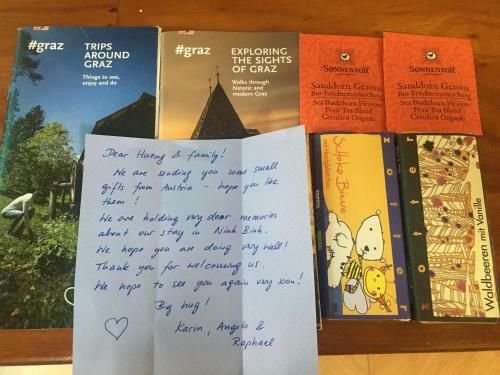 #graz
TRIPS
AROUND
GRAZ
Things to see,
enjoy and do
#graz
EXPLORING
THE SIGHTS
OF GRAZ
Walks through
historic and
modern Graz
SONNENTOR
Sanddorn Genuss
Bio-Früchteteemischung
Sea Buckthorn Pleasure
Fruit Tea Blend
Certified Organic
SONNENTOR
Sanddorn Genuss
Bio-Früchteteemischung
Sea Buckthorn Pleasure
Fruit Tea Blend
Certified Organic
Dear Huong & family!
We are sending you some small
gifts from Austria - hope you like
them!
We are holding very dear memories
about our stay in Ninh Binh.
We hope you are doing very well!
Thank you for welcoming us.
We hope to see you again very soon!
Big hug!
Karin, Angelo &
Raphael
zotter
zotter
Waldbeeren mit Vanille